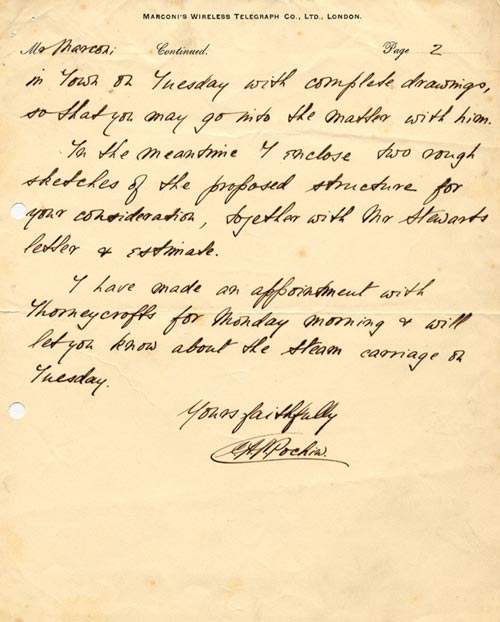 MARCONI'S WIRELESS TELEGRAPH CO., LTD., LONDON.
Mr Marconi Continued. Page 2
in Town on Tuesday with complete drawings,
so that you may go into the matter with him.
In the meantime I enclose two rough
sketches of the proposed structure for
your consideration, together with Mr Stewarts
letter & estimate.
I have made an appointment with
Thorneycrofts for Monday morning & will
let you know about the steam carriage on
Tuesday.
Yours faithfully
Pochin.